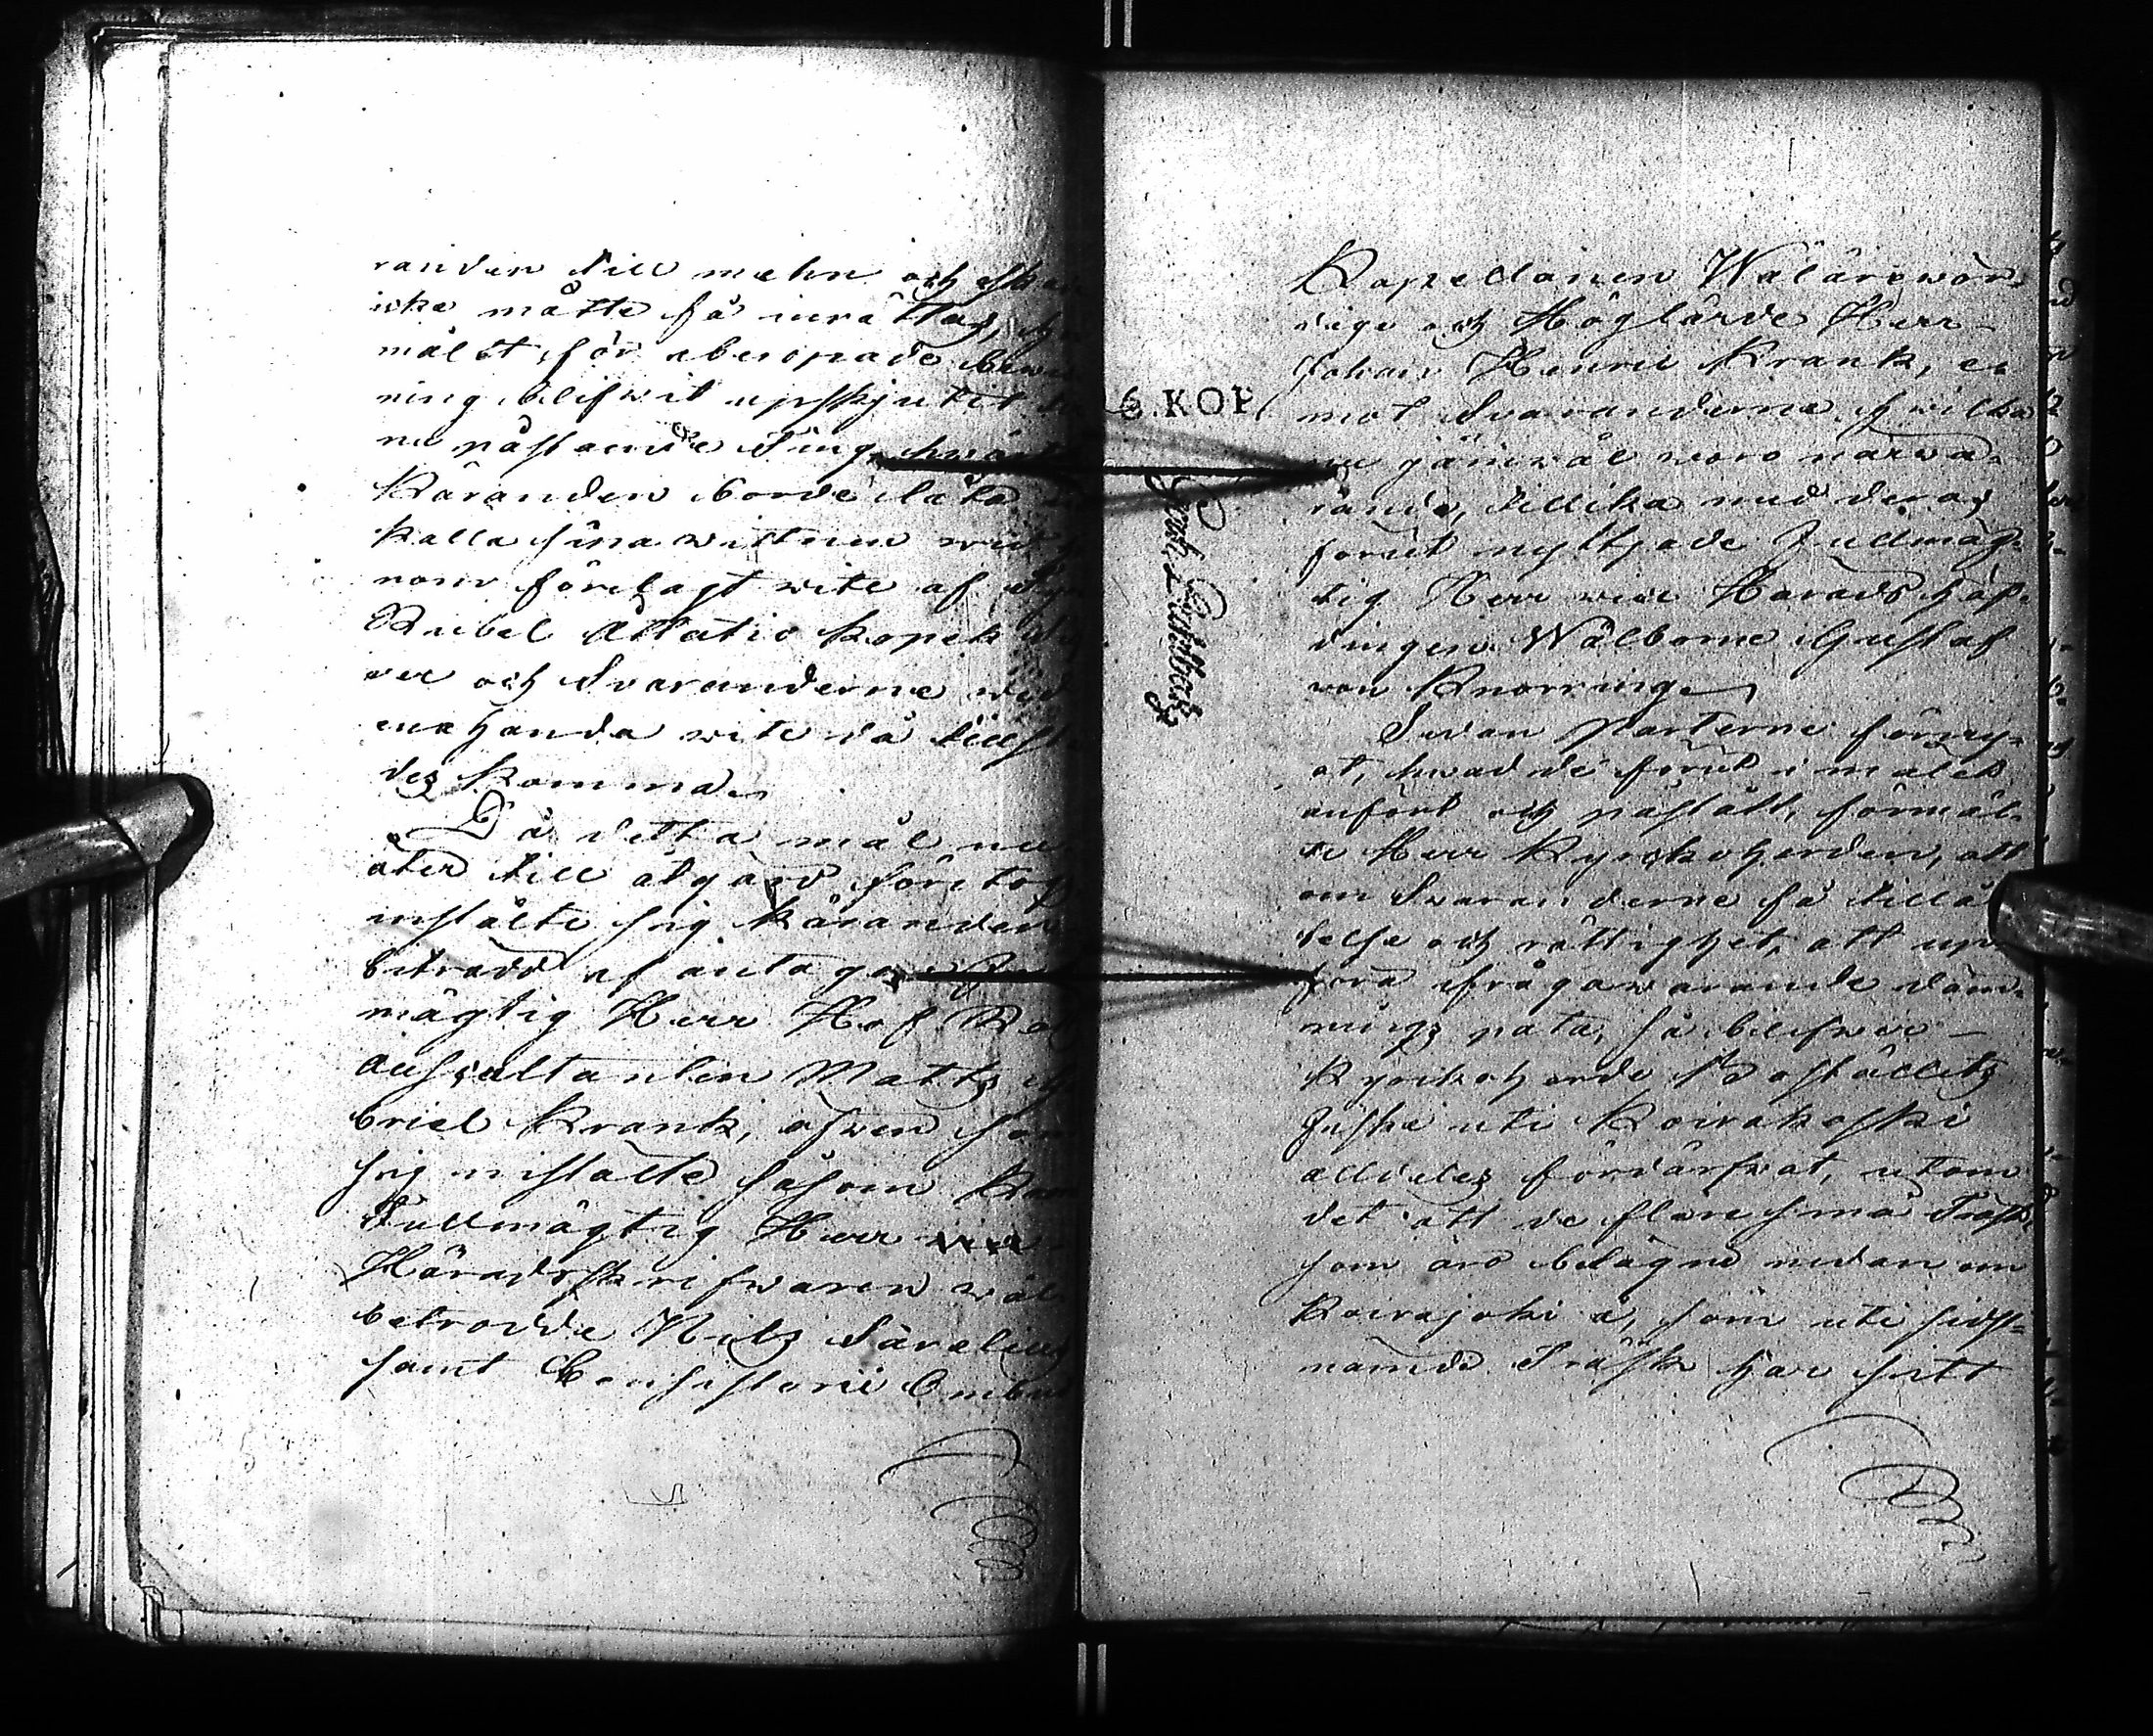 randen till mehn och
icke måtte få inrättas,
målet, för åberopade
ning blifwit upskjutit
nu nästående Ting,
Käranden borde låta
kalla sina wittnen wid
nom förelagt wite af
Rubel Åttatio kopek
ver och Svaranderne wid
enahanda wite då
des komma.
Då detta mål nu
åter till åtgärd företogs
instälte sig Käranden
biträdd af antagen
mägtig Herr Hof
auscultanten Matts
briel Krank, äfwen som
sig instälte såsom
Fullmägtig Herr vice
Häradsskrifwaren wäl
betrodde Nils Särelius
samt Consistorii
Kapellanen Wälärewör-
dige och Höglärde Herr
Johan Henric Krank, e-
mot Svaranderne, hwilka
nu jämwäl woro närwa-
rande, tillika med deras
förut nyttjade Fullmäg-
tig Herr vice Häradshöf-
dingen Wälborne Gustaf
von Knorring.
6. KOP.
Sedan Parterne förny-
at, hwad de förut i målet
anfört och påstått, förmäl-
te Herr Kyrkoherden, att
om Svaranderne få tillå
telse och rättighet, att up-
föra ifrågawarande däm-
nings pata, så blifwer
Kyrkoherde Boställets
fiske uti Koirakoski
alldeles förderfwat, utom
det att de flere små Träsk,
som äro belägne nedan om
Koirajoki å, som uti sidst-
nämnde Träsk har sitt